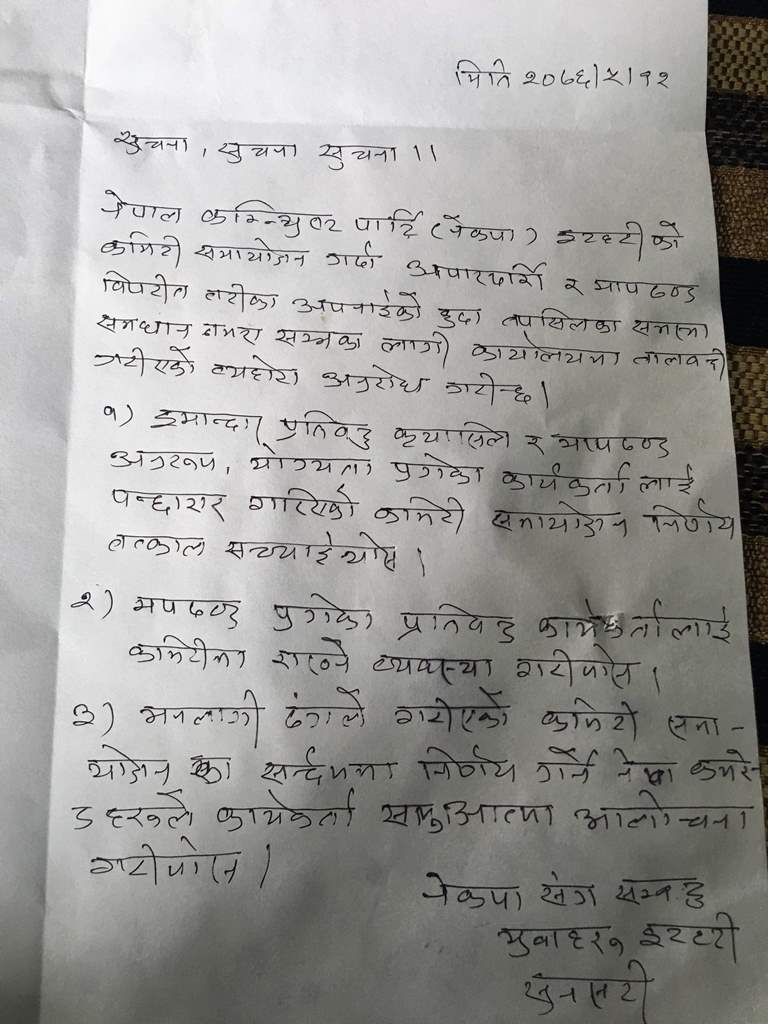 मिति २०७६।५।१२
सुचना, सुचना सुचना ।।
नेपाल कम्युनिष्ट पार्टि (नेकपा) इटहरीको
कमिटी समायोजन गर्दा अपारदर्शि र मापदण्ड
विपरीत तरीका अपनाईको हुदा तपसिलका समस्या
समधान नभए सम्मका लागी कार्यालयमा तालबन्दी
गरीएको व्यहोरा अनुरोध गरीन्छ।
१) इमान्दार प्रतिवद्द क्रयासिल र मापदण्ड
अनुरूप, योग्यता पुगेका कार्यकर्ता लाई
पन्छाएर गारिएको कमिटी समायोजन निर्णय
तत्काल सच्याईयोस।
२) मपदण्ड पुगेका प्रतिवद्द कार्यकर्तालाई
कमिटीमा राख्ने व्यवस्था गरीयोस।
३) मनलागी ढंगले गरीएको कमिटी समा-
योजन का सर्न्दभमा निर्णय गर्ने नेता कमरे-
ड हरूले कार्यकर्ता सामु आत्मा आलोचना
गरीयोस।
नेकपा संग सम्वद्द
युवाहरू इटहरी
सुनसरी